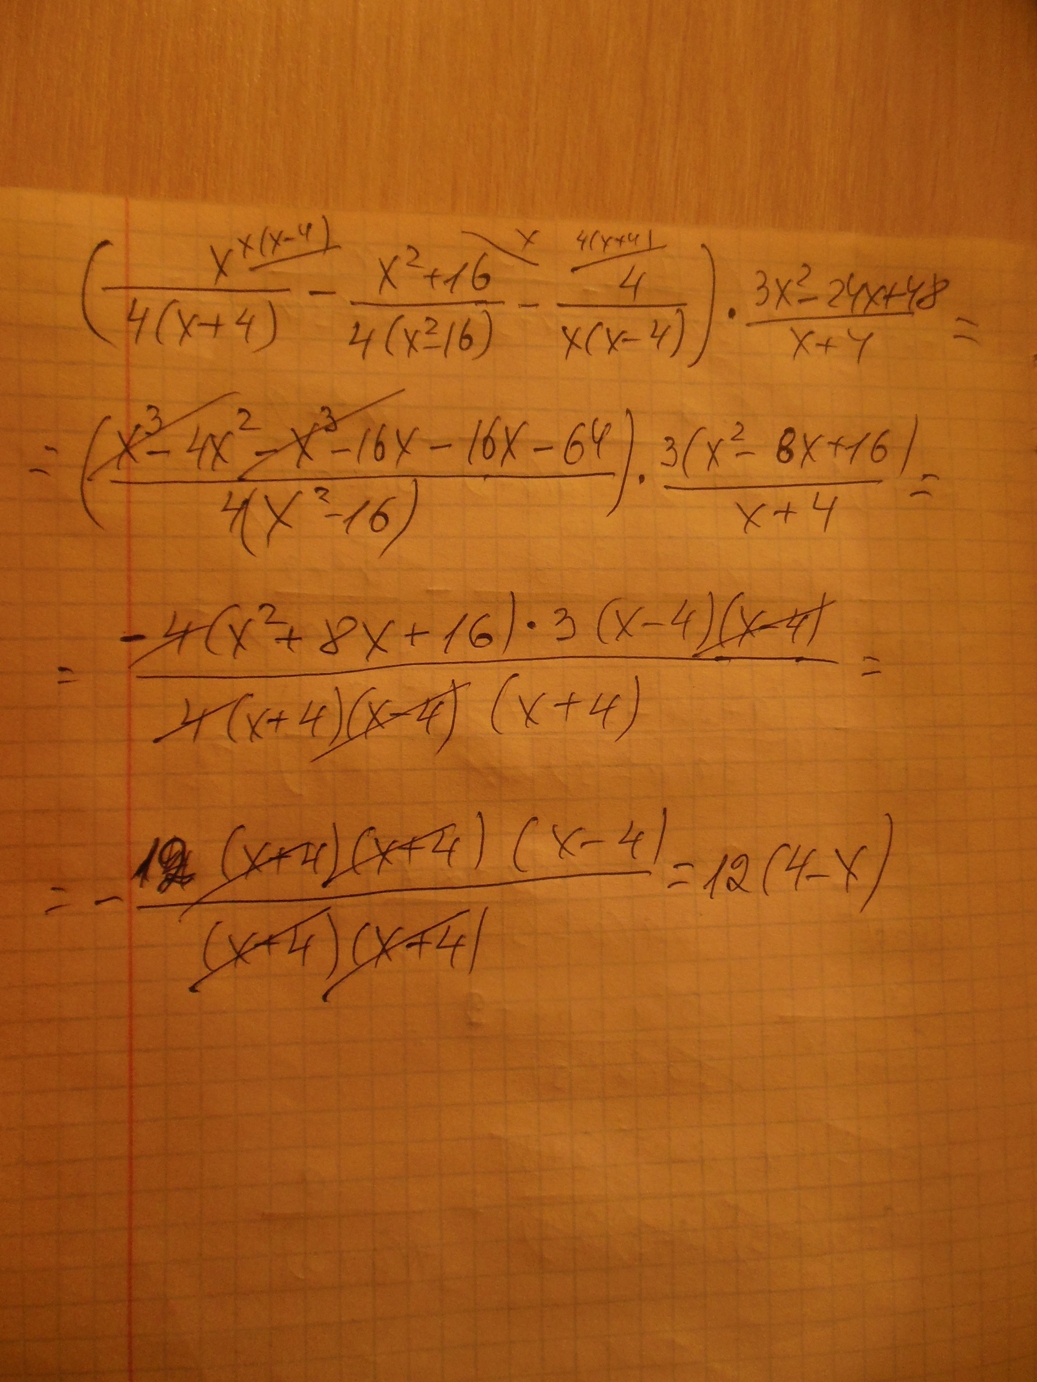 (x^{x(x-4)}/4(x+4) - x²+16^{x}/4(x²-16) - 4^{4(x+4)}/x(x-4)) · 3x²-24x+48/x+4 =
= (x³-4x²-x³-16x-16x-64/4(x²-16)) · 3(x²-8x+16)/x+4 =
= -4(x²+8x+16)·3(x-4)(x-4)/4(x+4)(x-4)(x+4) =
= - 12(x+4)(x+4)(x-4)/(x+4)(x+4) = 12(4-x)